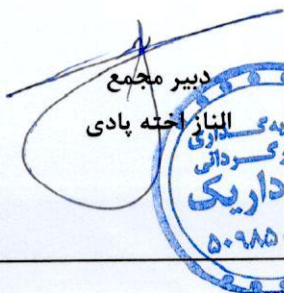 دبیر مجمع
الناز اخته پادی
گردانی
داریک
۵۰۹۸۵